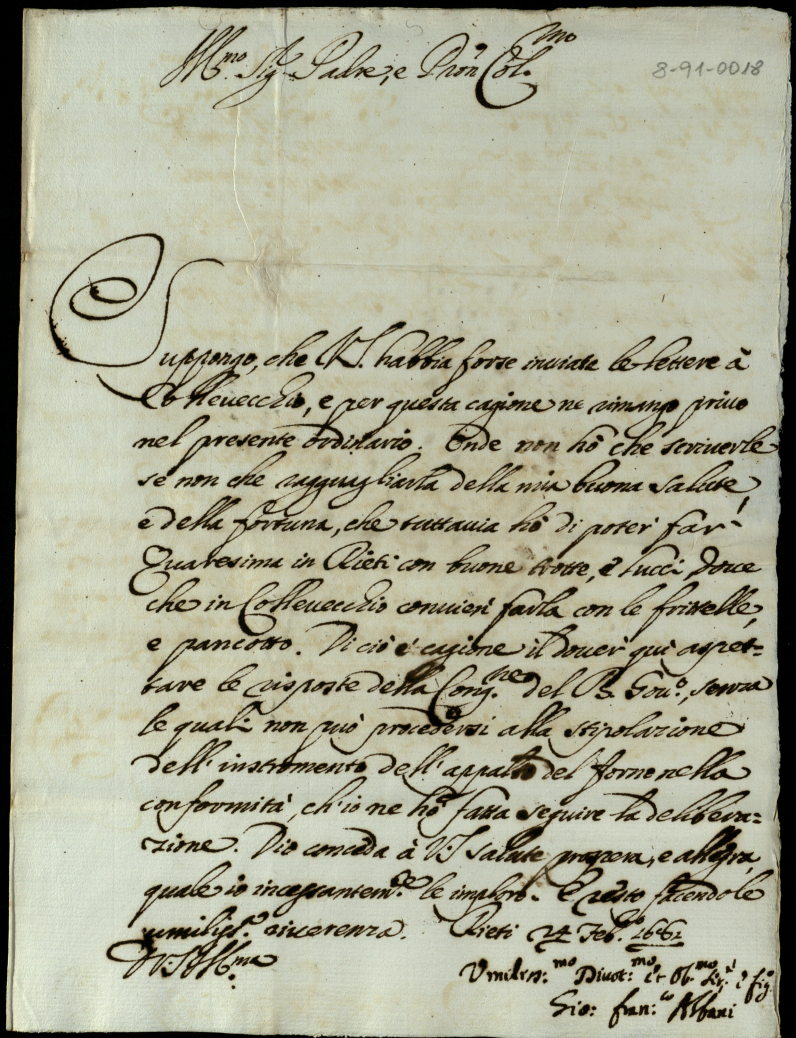 Ill.mo Sig.r Padre, e Pron Col.mo
8-91-0018
Suppongo, che V.S. habbia forse inviate le lettere à
Collevecchio, e per questa cagione ne rimango privo
nel presente ordinario. Onde non hò che scriverle
se non che ragguagliarla della mia buona salute,
e della fortuna, che tuttavia hò di poter far
Quaresima in Rieti con buone trotte, e lucci dove
che in Collevecchio convien farla con le frittelle,
e pancotto. Di ciò è cagione il dover quì aspet=
tare le risposte della Cong.ne del B. Gov.o, senza
le quali non può procedersi alla stipolazione
dell' instromento dell' appalto del forno nella
conformità, ch'io ne hò fatta seguire la delibera=
zione. Dio conceda à V.S. salute prospera, e allegra,
quale io incessantem.te le imploro. E resto facendole
umiliss.a riverenza. Rieti 24 Feb.o
V.S. Ill.ma
Umiliss.mo Divot.mo et Ob.mo Ser.e e fig.o
Gio: Fran.co Albani